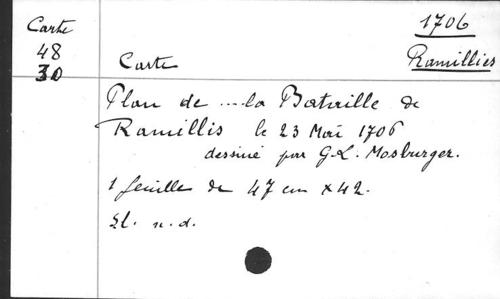 Carte
48
30
1706
Ramillies
Carte
Plan de ... la Bataille de
Ramillis le 23 Mai 1706
dessiné par G.L. Mosburger.
1 feuille de 47 cm x 42.
Sl. n.d.